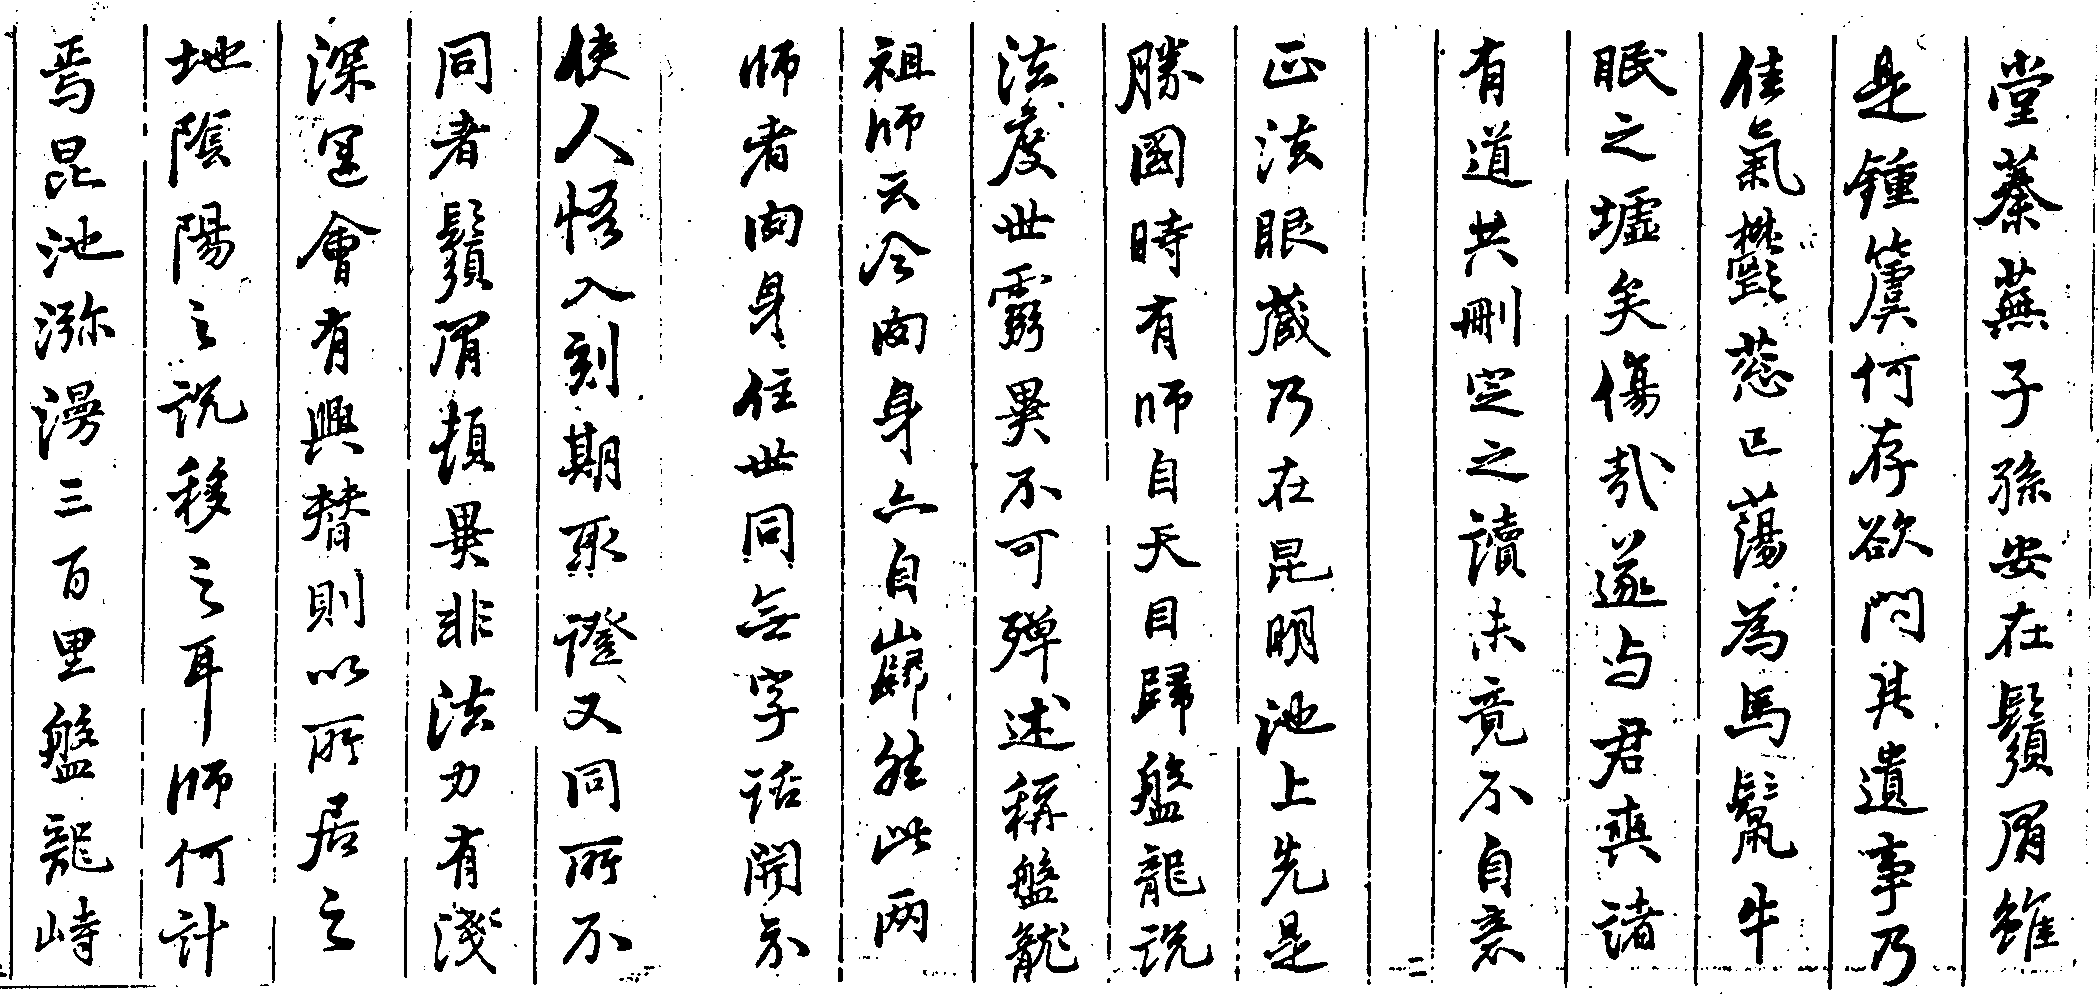 堂蓁蕪子孫安在鬚眉雖
是鍾簴何存欲問其遺事乃
佳氣鬱葱已蕩為馬鬣牛
眠之墟矣傷哉遂与君爽諸
有道共刪定之讀未竟不自意
正法眼蔵乃在昆明池上先是
勝國時有师自天目歸盤龍説
法度世靈異不可殫述稱盤龍
祖师云今肉身亦自巋然此两
师者肉身住世同無字話開示
使人悟入刻期取證又同所不
同者鬚眉頓異非法力有淺
深運會有興替則以所居之
地陰陽之説移之耳师何計
焉昆池瀰漫三百里盤龍峙